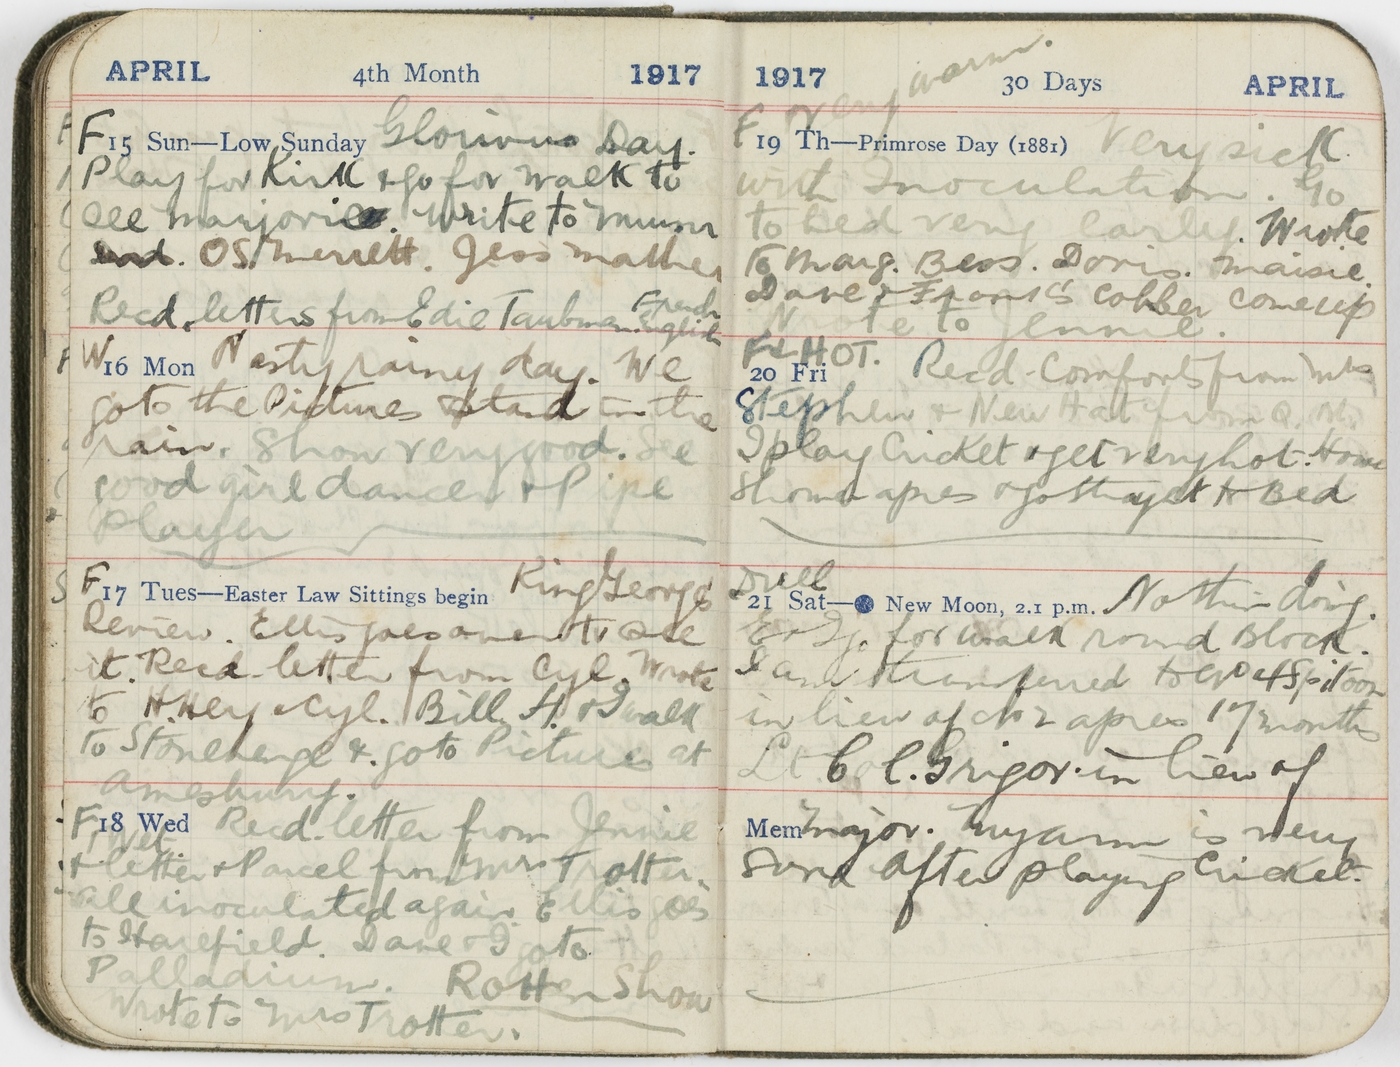 APRIL 4th Month 1917
F 15 Sun—Low Sunday Glorious Day.
Play for Kirk & go for walk to
see Marjorie. Write to Mum
and. O.S. Merrett. Jess Mather
Recd. letters from Edie Taubman. French
English
W 16 Mon Nasty rainy day. We
go to the Pictures & stand in the
rain. Show very good. See
good girl dancer & Pipe
Player
F 17 Tues—Easter Law Sittings begin King George's
Review. Ellis goes over to see
it. Recd letter from Cyl. Wrote
to H. Hey & Cyl. Bill H. & I walk
to Stonehenge & go to Pictures at
Amesbury.
F 18 Wed Recd. letter from Jennie
Wet.
& letter & Parcel from Mrs Trotter.
All inoculated again. Ellis goes
to Harefield. Dave & I go to
Palladium. Rotten Show
Wrote to Mrs Trotter.
1917 30 Days APRIL
very warm.
F 19 Th—Primrose Day (1881) Very sick
with Inoculation. Go
to bed very early. Wrote
to Marg. Bess. Doris. Maisie.
Dave & Frank's cobber come up
Wrote to Jennie.
F & HOT.
20 Fri Recd. Comforts from Mrs
Stephen & New Hat from Q.M.
I play Cricket & get very hot. Have
shower apres & go straight to Bed
Dull
21 Sat— New Moon, 2.1 p.m. Nothin doing.
E & I go for walk round Block.
I am transferred to
in lieu of No 2 apres 17 months
Lt Col. Grigor in lieu of
Mem Major. My arm is very
sore after playing Cricket.